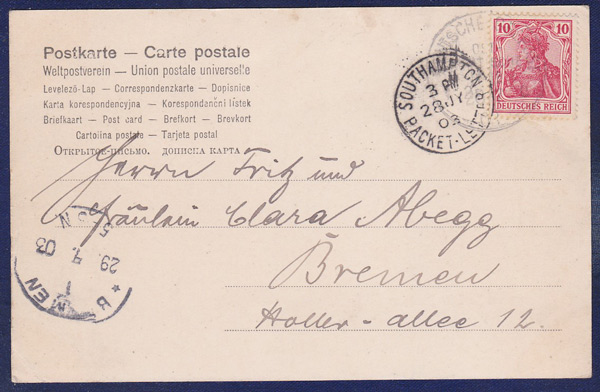 Postkarte — Carte postale
Weltpostverein — Union postale universelle
Levelező-Lap — Correspondenzkarte — Dopisnice
Karta korespondencyjna — Korespondanční lístek
Briefkaart — Post card — Brefkort — Brevkort
Cartolina postale — Tarjeta postal
Открытое-письмо. дописка карта
10 10
DEUTSCHES REICH
SOUTHAMPTON
3 PM
28 JY
03
PACKET-LETTER
Herrn Fritz und
Fräulein Clara Abegg
Bremen
Holler-allee 12.
29. 7. 03